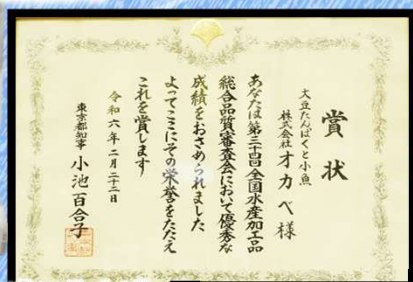 賞状
大豆たんぱくと小魚
株式会社オカベ様
あなたは第三十四回全国水産加工品
総合品質審査会において優秀な
成績をおさめられました
よってここにその栄誉をたたえ
これを賞します
令和六年二月二十二日
東京都知事 小池百合子